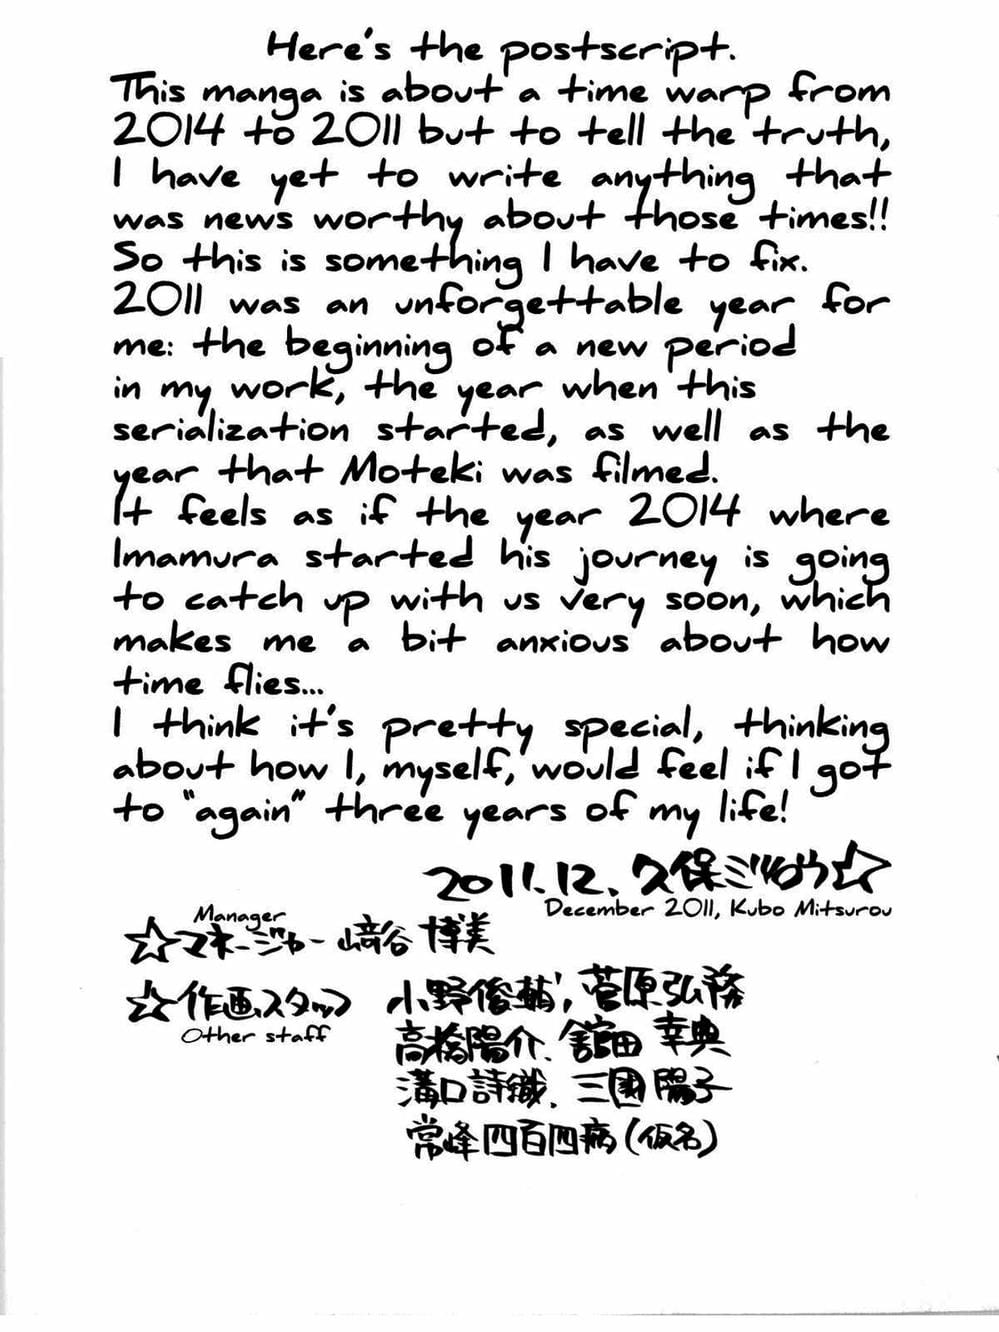 Here's the postscript.
This manga is about a time warp from
2014 to 2011 but to tell the truth,
I have yet to write anything that
was news worthy about those times!!
So this is something I have to fix.
2011 was an unforgettable year for
me: the beginning of a new period
in my work, the year when this
serialization started, as well as the
year that Moteki was filmed.
It feels as if the year 2014 where
Imamura started his journey is going
to catch up with us very soon, which
makes me a bit anxious about how
time flies...
I think it's pretty special, thinking
about how I, myself, would feel if I got
to "again" three years of my life!
2011.12. 久保ミツロウ☆
December 2011, Kubo Mitsurou
Manager
☆マネージャー 﨑谷 博美
☆作画スタッフ 小野俊輔, 菅原弘務
Other staff
高橋陽介、舘田 幸典
溝口詩織、三國陽子
常峰四百四病(仮名)